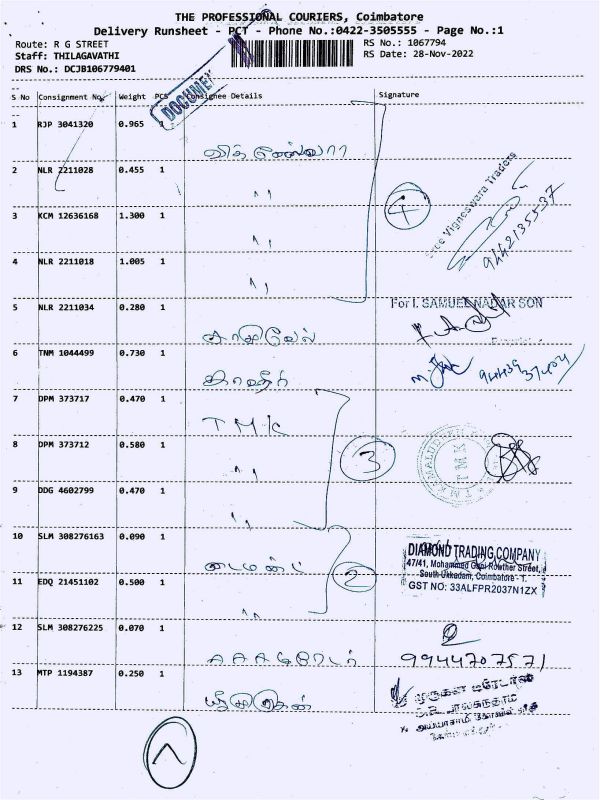 THE PROFESSIONAL COURIERS, Coimbatore
Delivery Runsheet - PCT - Phone No.:0422-3505555 - Page No.:1
Route: R G STREET
RS No.: 1067794
Staff: THILAGAVATHI
RS Date: 28-Nov-2022
DRS No.: DCJB106779401
S No Consignment No. Weight PCS Consignee Details Signature
1 RJP 3041320 0.965 1
2 NLR 2211028 0.455 1 " Sree Vigneswara Traders
3 KCM 12636168 1.300 1 " 4
4 NLR 2211018 1.005 1 "
5 NLR 2211034 0.280 1 For I. SAMUEL NADAR SON
6 TNM 1044499 0.730 1
7 DPM 373717 0.470 1 TMK
8 DPM 373712 0.580 1 " 3 TMK
9 DDG 4602799 0.470 1 "
10 SLM 308276163 0.090 1 டைமண்ட் DIAMOND TRADING COMPANY
47/41, Mohammed Gani Rowther Street,
South Ukkadam, Coimbatore - 1.
11 EDQ 21451102 0.500 1 " 2 GST NO: 33ALFPR2037N1ZX
12 SLM 308276225 0.070 1 9944707571
13 MTP 1194387 0.250 1 முருகன்